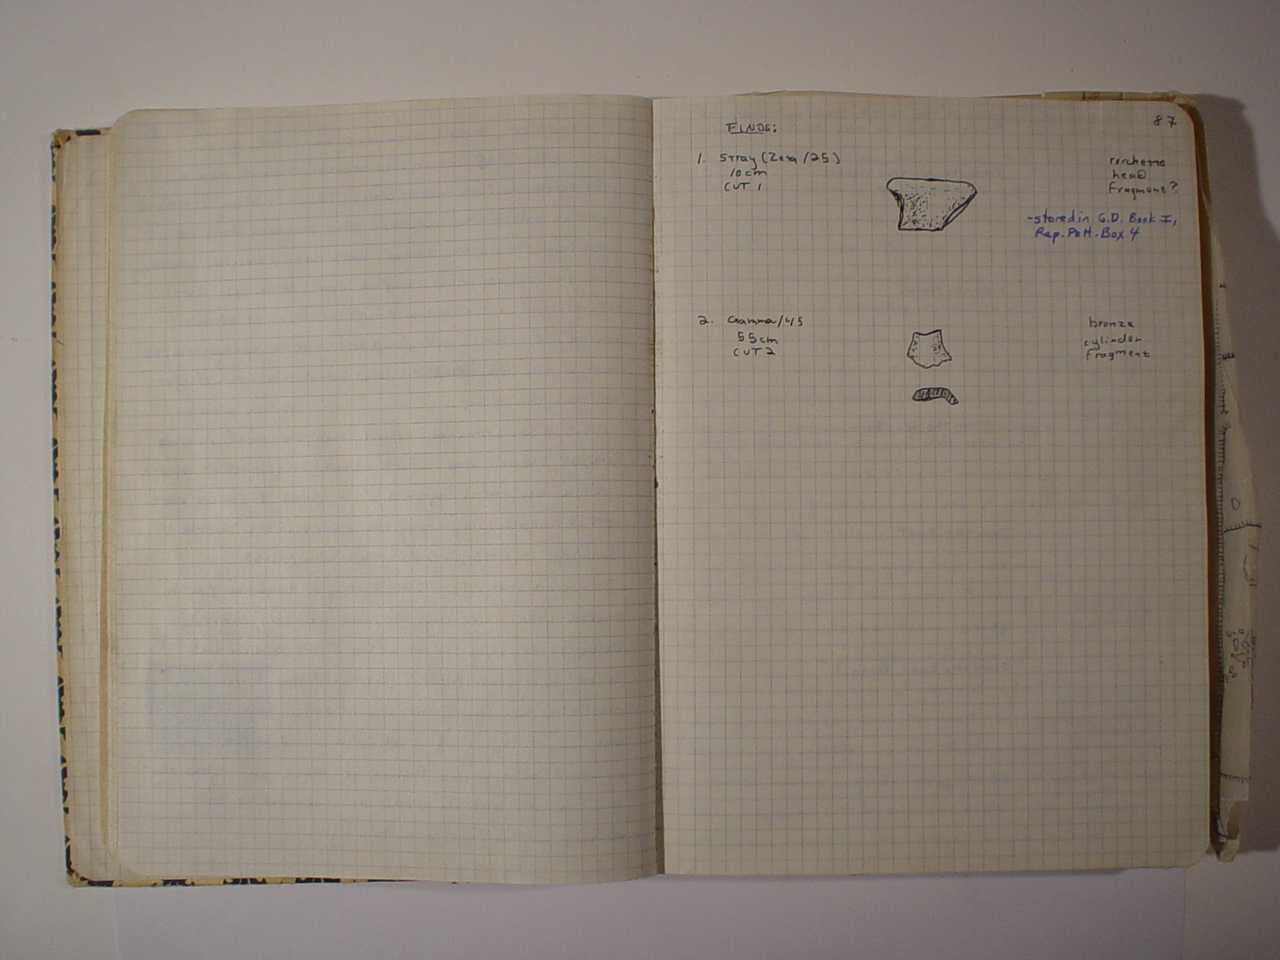 87
FINDS:
1. Stray (Zeta/25)
10cm
CUT 1
rocchetto
head
fragment?
-stored in G.D. Book I,
Rep. Pott. Box 4
2. Gamma/45
55cm
CUT 2
bronze
cylinder
fragment